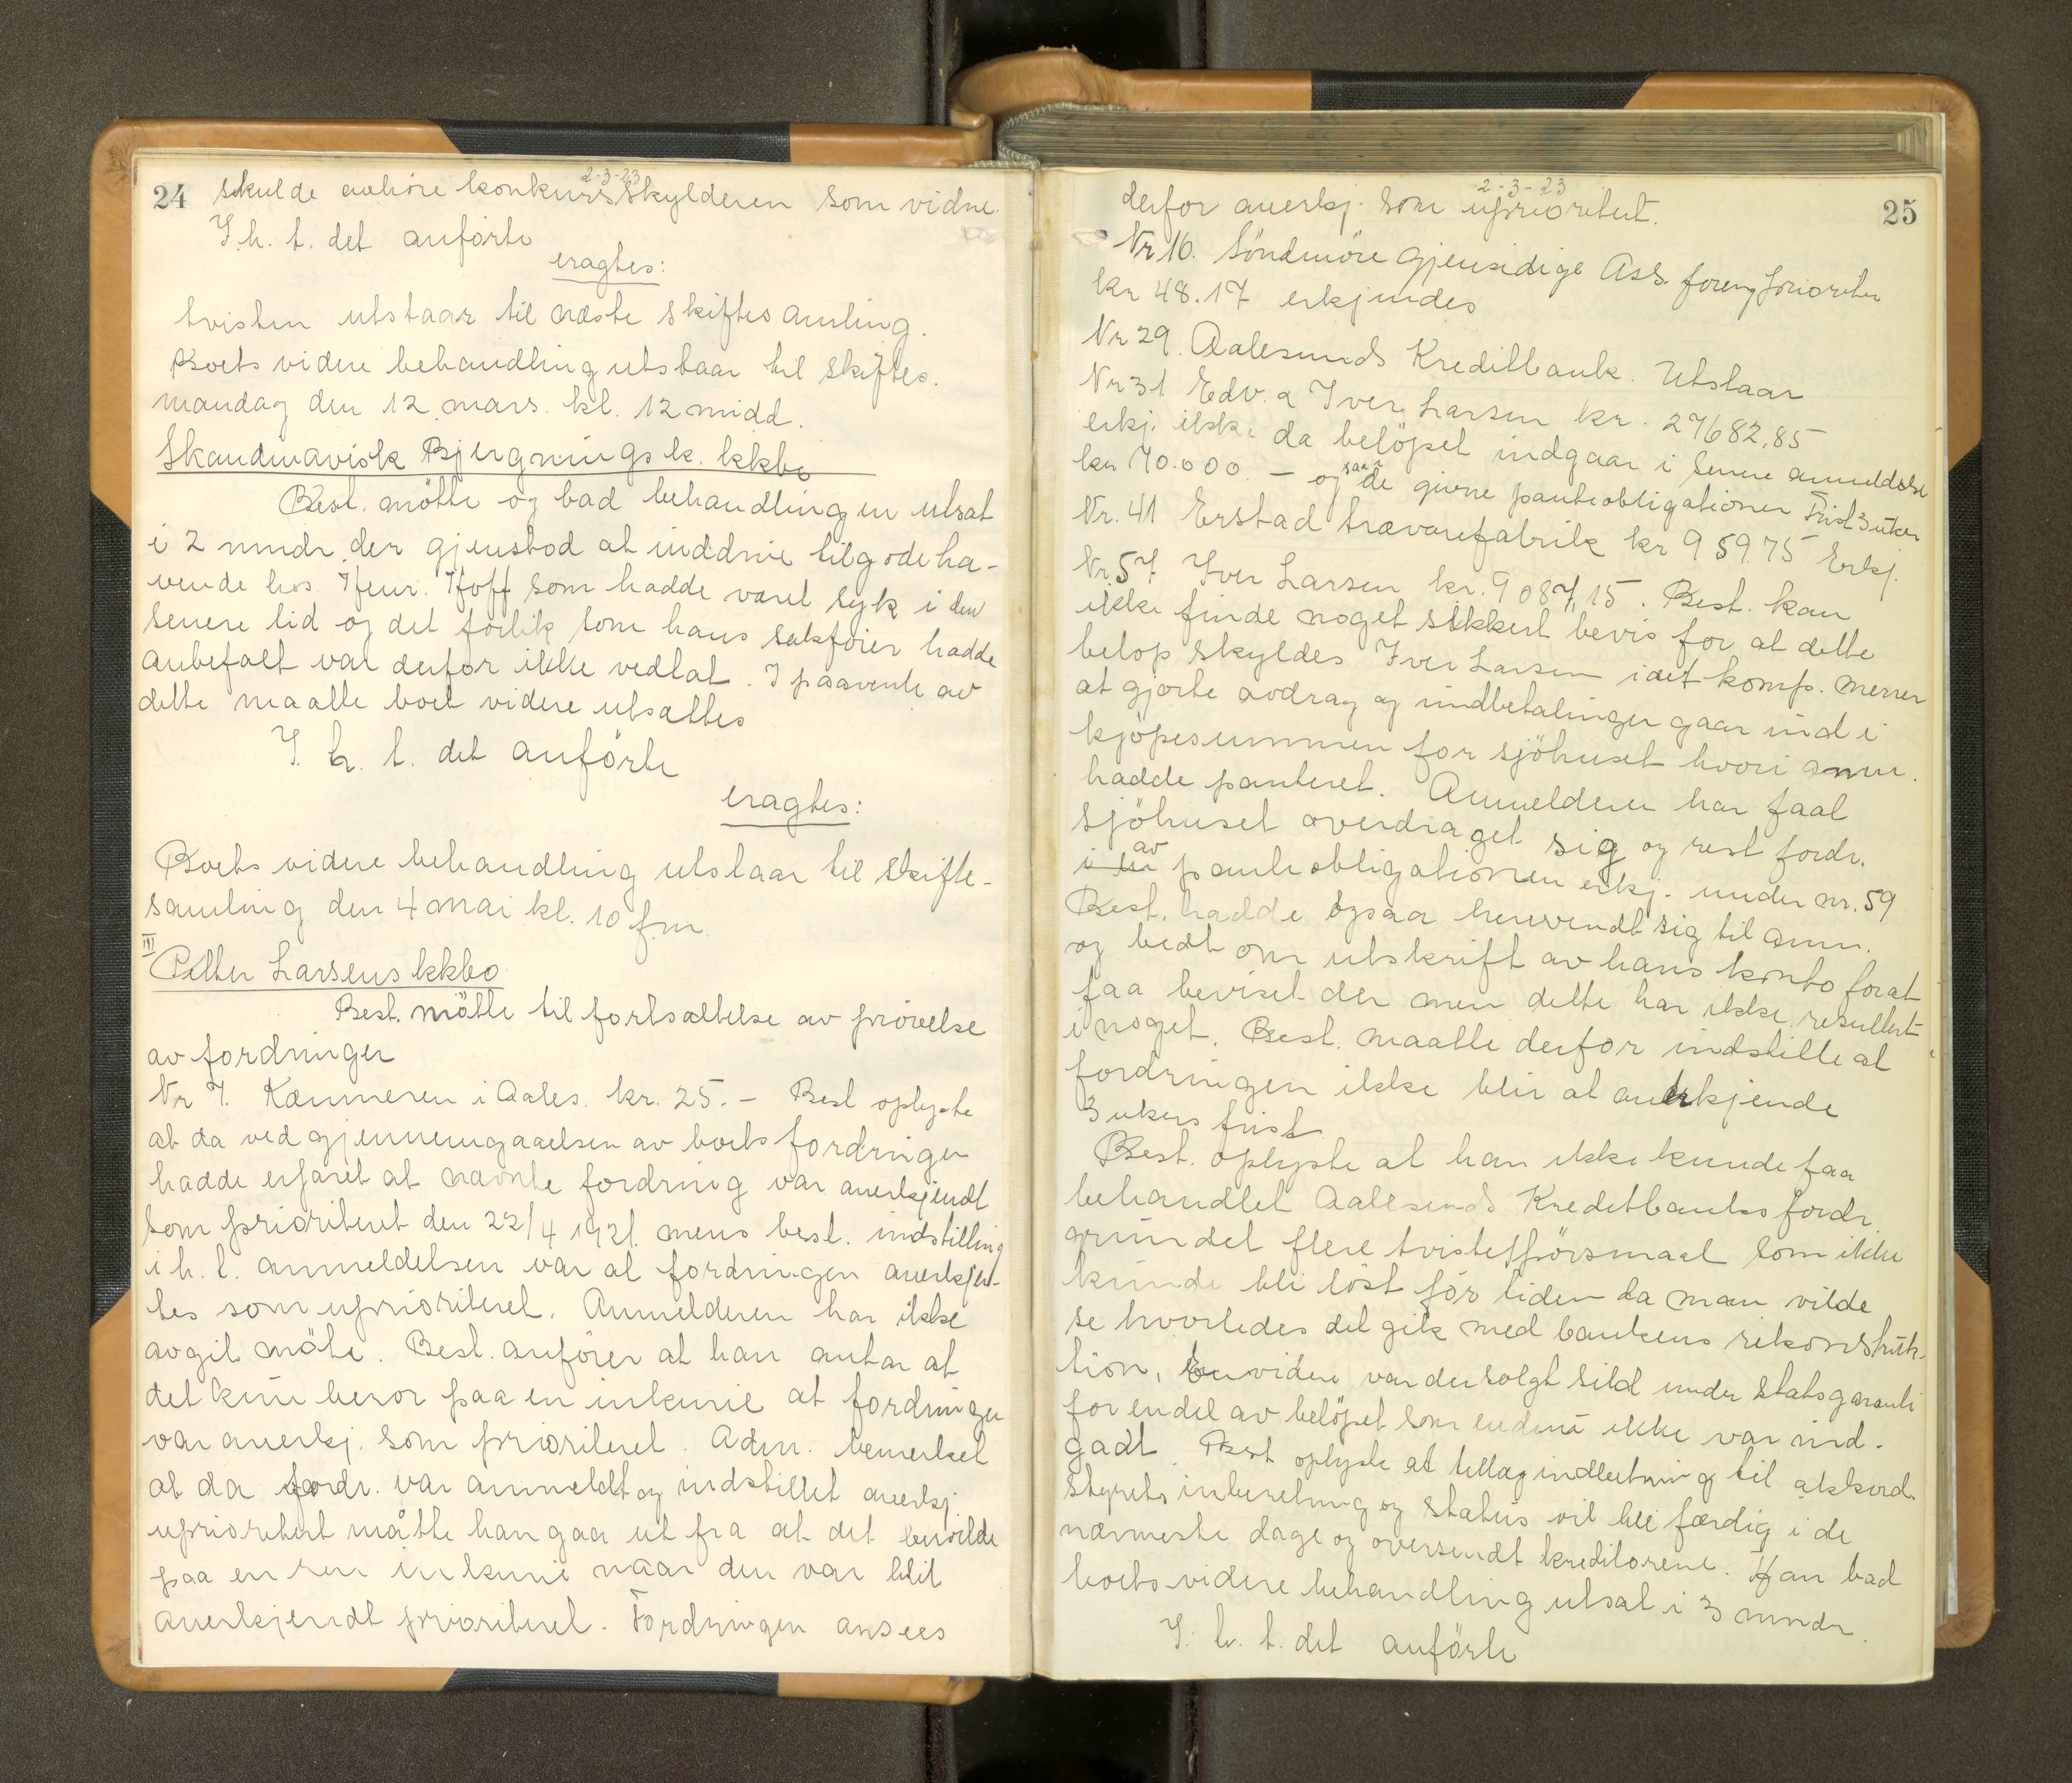 24
2-3-23
skulde avhøre konkursskylderen som vidne.
I. h. t. det anförte
eragtes:
tvisten utstaar til næste skiftesamling.
Boets videre behandling utstaar til skiftes.
mandag den 12 mars. kl. 12 midd.
Skandinavisk Bjergningsk. kkbo
Best. mötte og bad behandlingen utsat
i 2 mndr. der gjenstod at inddrive tilgodeha-
vende hos Henr. Hoff som hadde været syk i den
senere tid og det forlik som hans sakfører hadde
anbefalt var derfor ikke vedtat. I paavente av
dette maatte boet videre utsættes
I. h. t. det anförte
eragtes:
Boets videre behandling utstaar til skifte-
samling den 4 mai kl. 10 f.m.
III
Petter Larsens kkbo
Best. mötte til fortsættelse av prøvelse
av fordringer
Nr 7. Kæmneren i Aales. kr. 25.- Best oplyste
at da ved gjennemgaaelsen av boets fordringer
hadde erfaret at nævnte fordring var anerkjendt
som prioriteret den 22/4 1921. mens best. indstilling
i h. t. anmeldelsen var at fordringen anerkjen-
tes som uprioriteret. Anmelderen har ikke
avgit møte. Best. anfører at han antar at
det kun beror paa en inkurie at fordringen
var anerkj. som prioriteret. Adm. bemerket
at da fordr. var anmeldt og indstillet anerkj
uprioritert måtte han gaa ut fra at det
paa en ren inkurie naar den var blit
anerkjendt prioriteret. Fordringen ansees
25
2-3-23
derfor anerkj. som uprioritert.
Nr 16. Söndmöre Gjensidige Ass. foreng prioritet
kr 48.17 erkjendes
Nr 29. Aalesunds Kreditbank. Utstaar
Nr 31 Edv. & Iver Larsen kr. 27682,85
erkj. ikke da belöpet indgaar i senere anmeldelse
kr 70.000 - og de givne panteobligationer Frist 3 uker
Nr. 41 Erstad trævarefabrik kr 959.75 Erkj.
Nr. 57 Iver Larsen kr. 9087,15. Best. kan
ikke finde noget sikkert bevis for at dette
belop skyldes Iver Larsen idet komp. mener
at gjorte avdrag og indbetalinger gaar ind i
kjöpesummen for sjöhuset hvori anm.
hadde panteret. Anmelderen har faat
sjöhuset overdraget sig og rest fordr.
av
panteobligationen erkj. under nr. 59
Best. hadde ogsaa henvendt sig til anm.
og bedt om utskrift av hans konto forat
faa beviset der men dette har ikke resultert
i noget. Best. maatte derfor indstille at
fordringen ikke blir at anerkjende
3 ukers frist
Best. oplyste at han ikke kunde faa
behandlet Aalesunds Kreditbanks fordr.
grundet flere tvistespörsmaal som ikke
kunde bli löst for tiden da man vilde
se hvorledes det gik med bankens rekonstruk-
tion, En videre var der solgt sild under statsgaranti
for endel av belöpet som endnu ikke var ind-
gaat. Best oplyste at tillægindberetning til akkord-
styrets inberetning og status vil bli færdig i de
nærmeste dage og oversendt kreditorene. Han bad
boets videre behandling utsat i 3 mndr.
I. h. t. det anförte